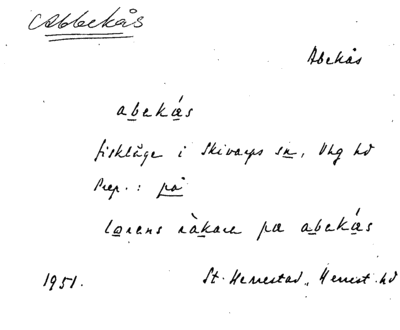 Abbekås
Abekås
abekás
fiskläge i Skivarps sn, Vhg hd
Prep.: på
lorens nàkare pæ abekás
1951. St. Herrestad, Herrest. hd